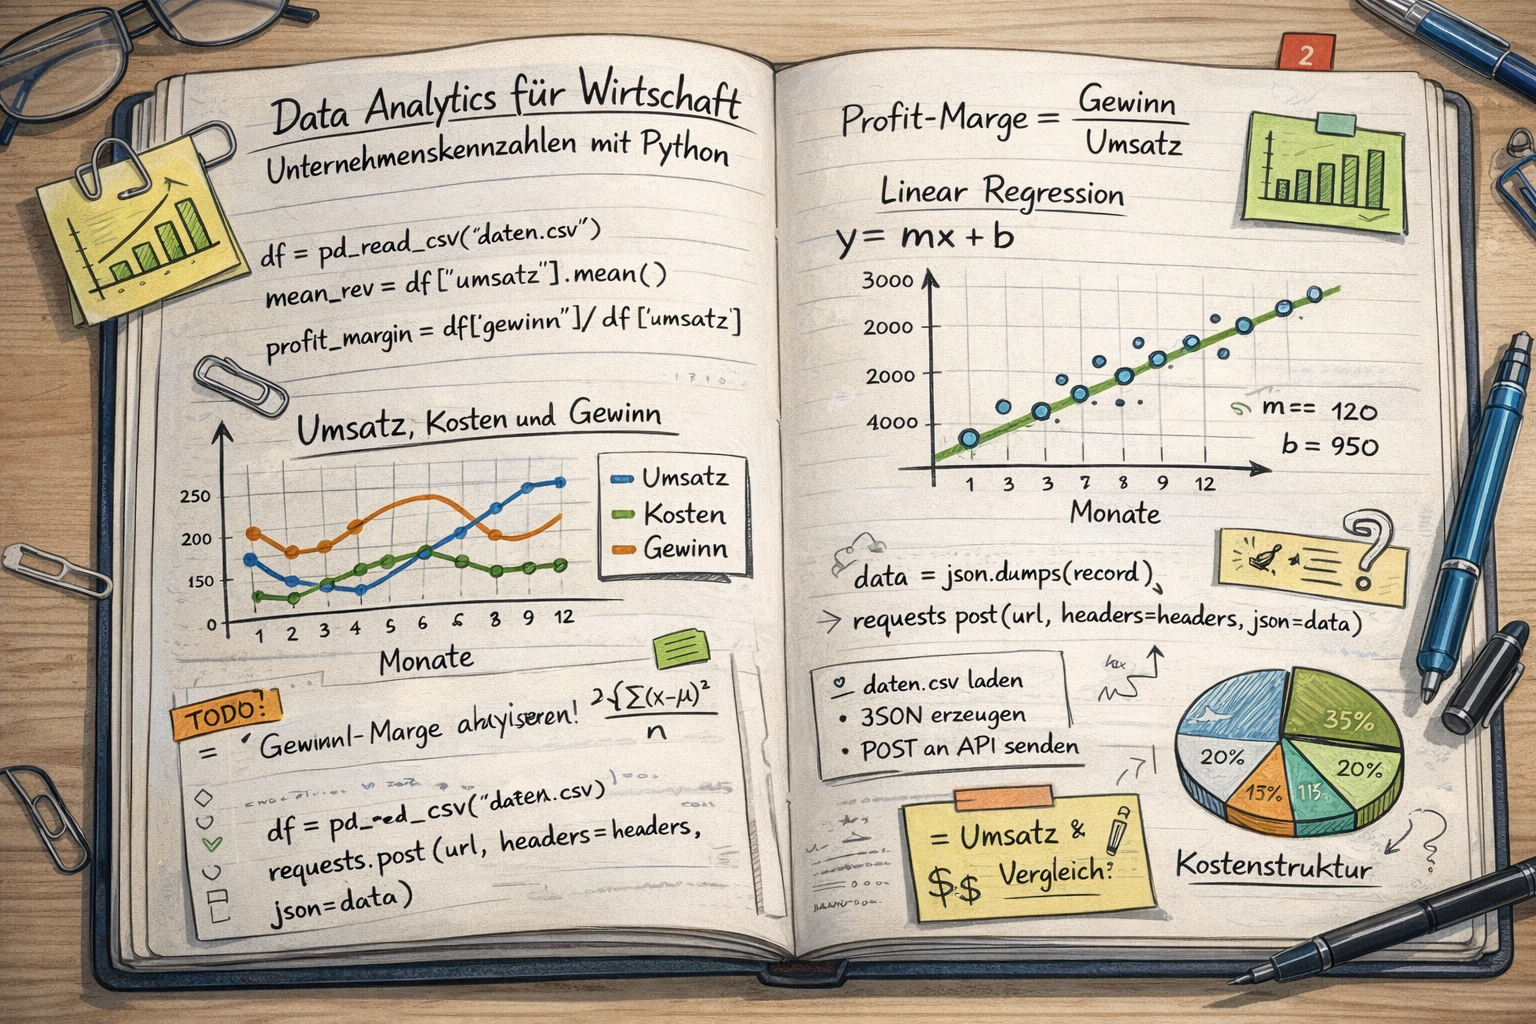 Data Analytics für Wirtschaft
Unternehmenskennzahlen mit Python
df = pd_read_csv("daten.csv")
mean_rev = df["umsatz"].mean()
profit_margin = df['gewinn"]/ df ['umsatz']
Umsatz, Kosten und Gewinn
250
200
150
0
1 2 3 4 5 6 6 8 9 12
Monate
Umsatz
Kosten
Gewinn
TODO!
= Gewinnl-Marge
2√Σ(x-μ)²
n
df = pd_ _csv("daten.csv)
requests.post (url, headers=headers,
json=data)
2
Profit-Marge = Gewinn
Umsatz
Linear Regression
y = mx + b
3000
2000
2000
4000
1 3 3 7 8 9 12
Monate
m== 120
b = 950
data = json.dumps(record),
→ requests post(url, headers=headers, json=data)
daten.csv laden
• 3SON erzeugen
• POST an API senden
?
35%
20%
20%
13%
Kostenstruktur
= Umsatz &
$$ Vergleich?